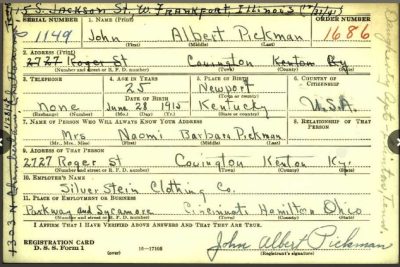 5 S. Jackson St. W. Frankfort, Illinois
SERIAL NUMBER 1. NAME (Print) ORDER NUMBER
1149 John Albert Pickman 1686
(First) (Middle) (Last)
2. ADDRESS (Print)
2727 Roger St Covington Kenton Ky
(Number and street or R. F. D. number) (Town) (County) (State)
3. TELEPHONE 4. AGE IN YEARS 5. PLACE OF BIRTH 6. COUNTRY OF CITIZENSHIP
25 Newport
DATE OF BIRTH
None June 28 1915 Kentucky U.S.A.
7. NAME OF PERSON WHO WILL ALWAYS KNOW YOUR ADDRESS 8. RELATIONSHIP OF THAT PERSON
Mrs Naomi Barbara Pickman
9. ADDRESS OF THAT PERSON
2727 Roger St Covington Kenton Ky.
(Number and street or R. F. D. number) (Town) (County) (State)
10. EMPLOYER'S NAME
Silverstein Clothing Co.
11. PLACE OF EMPLOYMENT OR BUSINESS
Parkway and Sycamore Cincinnati Hamilton Ohio
I AFFIRM THAT I HAVE VERIFIED ABOVE ANSWERS AND THAT THEY ARE TRUE.
REGISTRATION CARD
D. S. S. Form 1 16-17105
John Albert Pickman
(Registrant's signature)